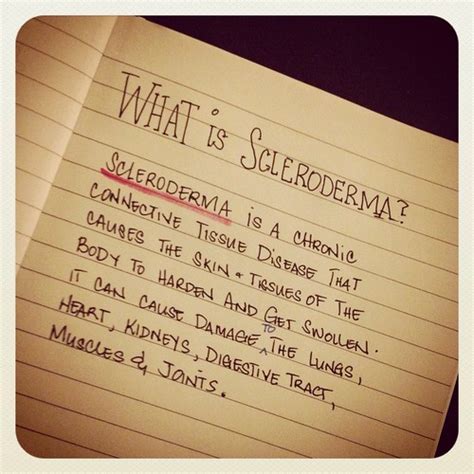 WHAT is SCLERODERMA?
SCLERODERMA IS A CHRONIC
CONNECTIVE TISSUE DISEASE THAT
CAUSES THE SKIN & TISSUES OF THE
BODY TO HARDEN AND GET SWOLLEN.
IT CAN CAUSE DAMAGE TO THE LUNGS,
HEART, KIDNEYS, DIGESTIVE TRACT,
MUSCLES & JOINTS.